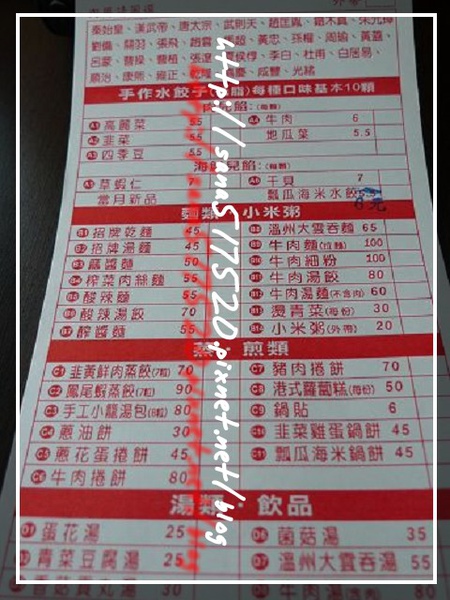 秦始皇、漢武帝、唐太宗、武則天、趙匡胤、鐵木真、朱元璋
劉備、關羽、張飛、趙雲、馬超、黃忠、孫權、周瑜、黃蓋、
呂蒙、曹操、曹植、張遼、李白、杜甫、白居易、
順治、康熙、雍正、乾隆、嘉慶、咸豐、光緒
手作水餃子 每種口味基本10顆
A1 高麗菜 5.5
A4 牛肉 6
A2 韭菜 5.5
地瓜葉 5.5
A3 四季豆 5.5
A5 草蝦仁 7
A6 干貝 7
當月新品
瓢瓜海米水餃 6元
麵類 小米粥
B1 招牌乾麵 45
B8 溫州大雲吞麵 65
B2 招牌湯麵 45
B9 牛肉麵(拉麵) 100
B3 麻醬麵 50
牛肉細粉 100
B4 榨菜肉絲麵 55
牛肉湯餃 80
B5 酸辣麵 55
牛肉湯麵(不含肉) 60
酸辣湯餃 70
燙青菜(每份) 30
B7 醡醬麵 55
小米粥(外帶) 20
蒸 煎類
C1 韭黃鮮肉蒸餃(7粒) 70
C7 豬肉捲餅 70
C2 鳳尾蝦蒸餃(7粒) 90
C8 港式蘿蔔糕(每份) 50
C3 手工小籠湯包(8粒) 80
C9 鍋貼 6
C4 蔥油餅 30
C10 韭菜雞蛋鍋餅 45
C5 蔥花蛋捲餅 45
C11 瓢瓜海米鍋餅 45
C6 牛肉捲餅 80
湯類·飲品
D1 蛋花湯 25
D6 菌菇湯 35
青菜豆腐湯 25
D7 溫州大雲吞湯 55
香菇貢丸湯 30
牛肉湯
http://sana517520.pixnet.net/blog